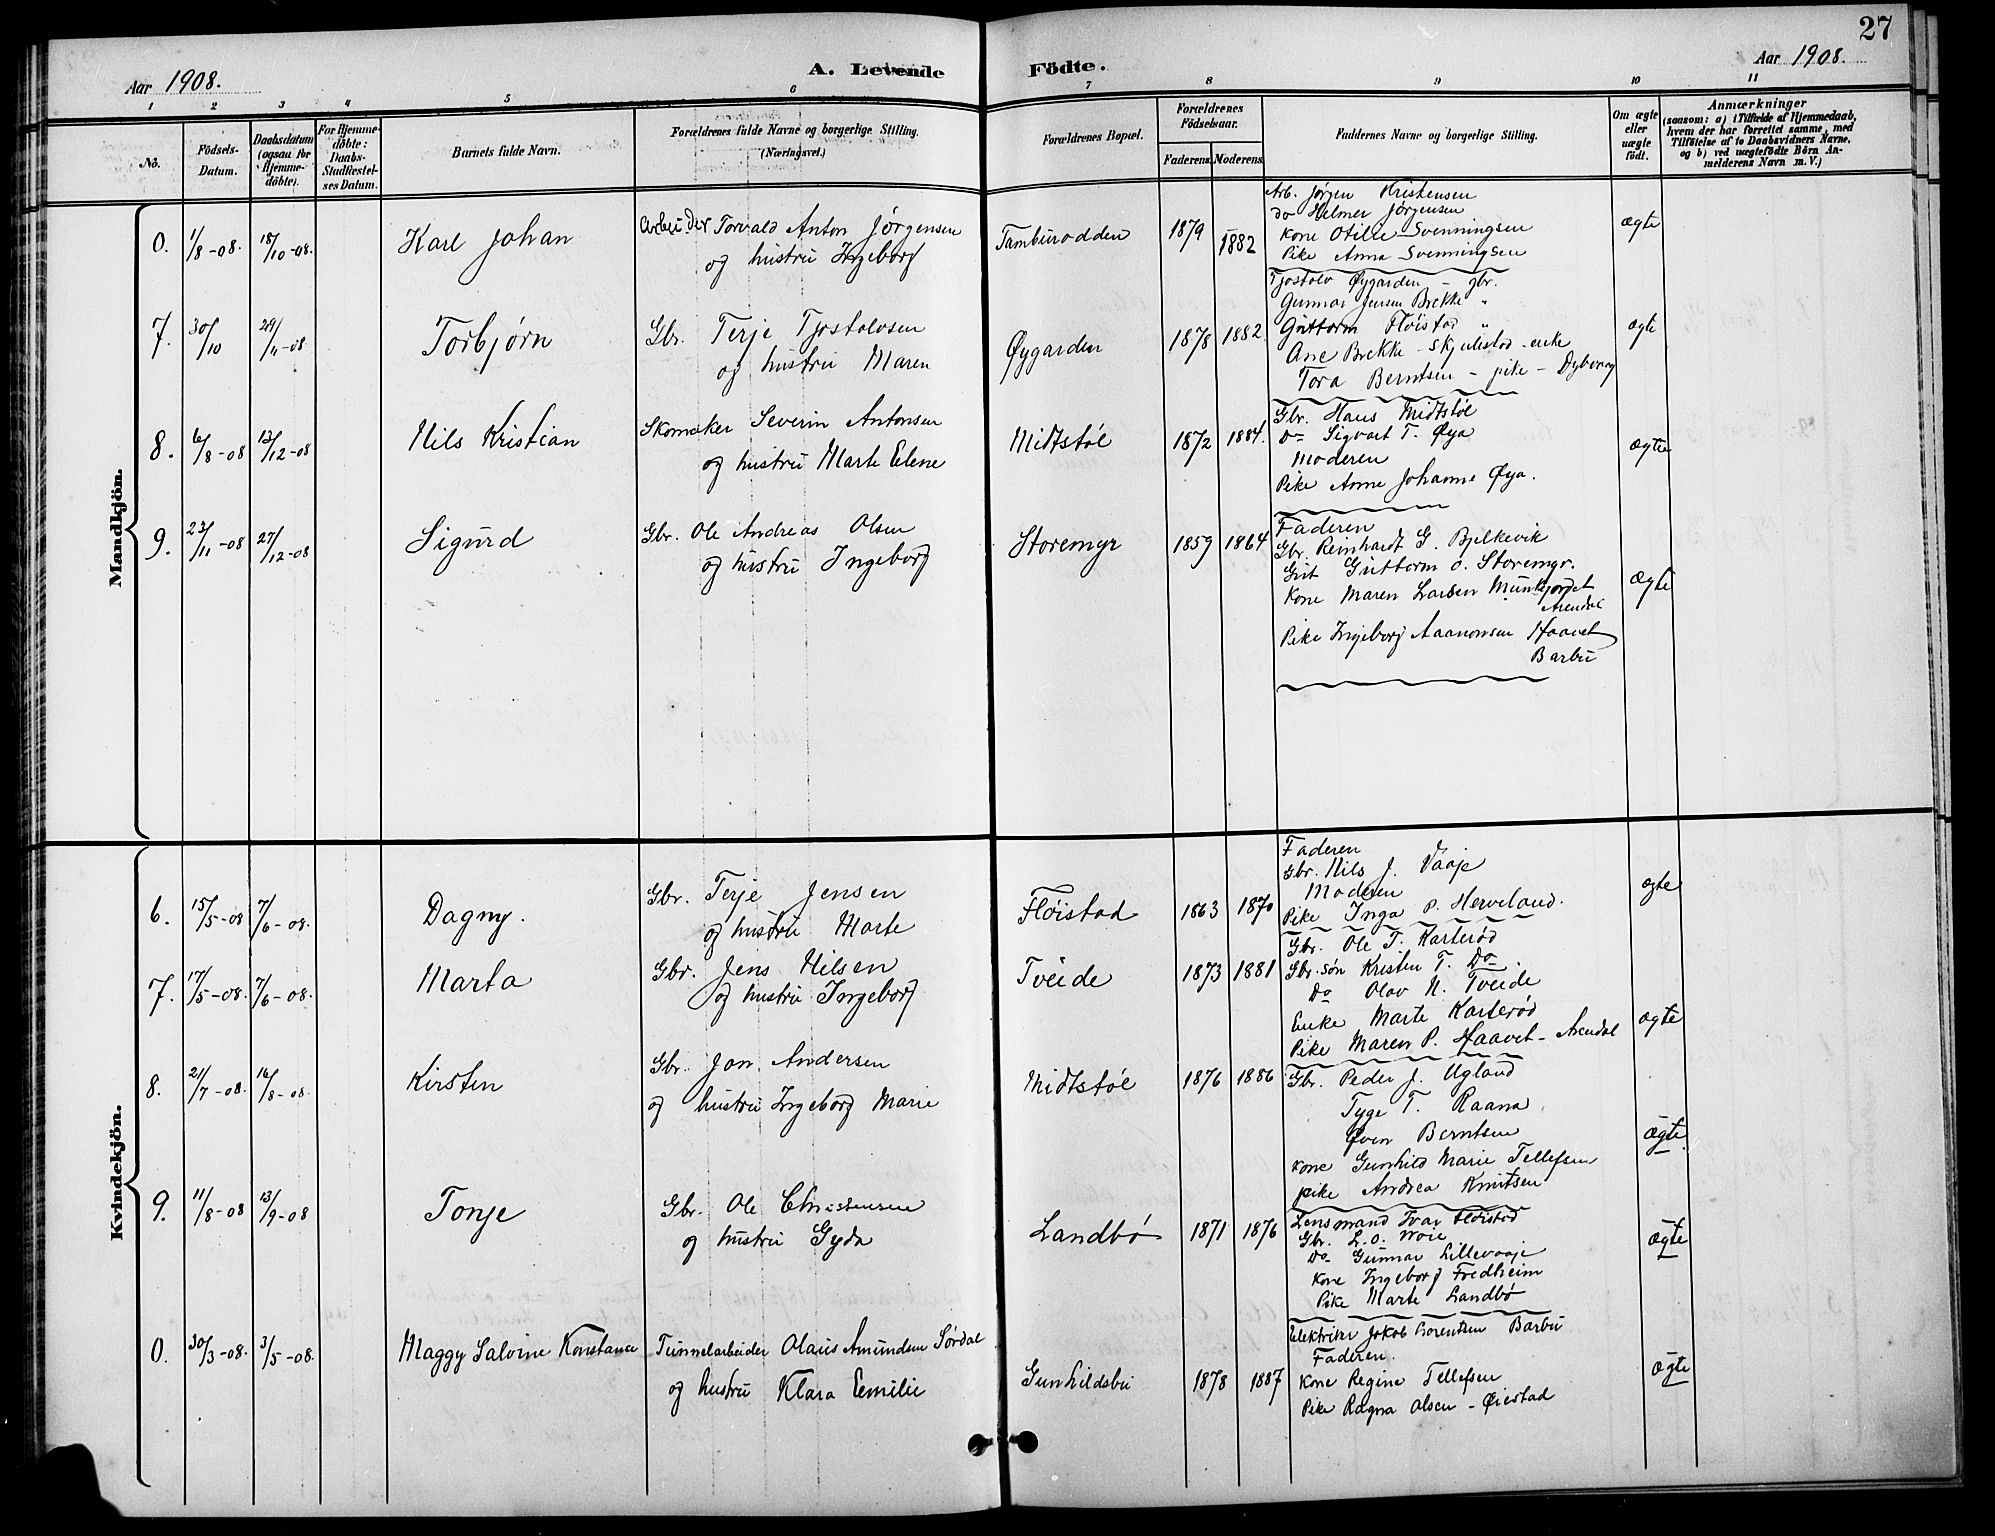 27
Aar 1908.
A. Levende Födte.
Aar 1908.
1 2 3 4 5 6 7 8 9 10 11
No.
Födsels-Datum.
Daabsdatum (ogsaa for Hjemmedöbte).
For Hjemmedöbte: Daabs-Stadfæstelses Datum.
Barnets fulde Navn.
Forældrenes fulde Navne og borgerlige Stilling.
(Næringsvei.)
Forældrenes Bopæl.
Forældrenes Födselsaar.
Faderens. Moderens.
Faddernes Navne og borgerlige Stilling.
Om ægte eller uægte födt.
Anmærkninger
(saasom: a) i Tilfælde af Hjemmedaab, hvem der har forrettet samme, med Tilföielse af to Daabsvidners Navne, og b) ved uægtefödte Börn Anmelderens Navn m. V.)
Mandkjön.
0. 1/8-08. 18/10-08. Karl Johan
Arbeider Torvald Anton Jørgensen
og hustru Ingeborg
Tamburodden 1879 1882
Arb. Jørgen Kristensen
do Helmer Jørgensen
Kone Otilie Svenningsen
Pike Anna Svenningsen
ægte
7. 30/10 29/11-08 Torbjørn
Gbr. Terje Tjostolvsen
og hustru Maren
Øygarden 1878 1882
Tjostolv Øygarden - gbr.
Gunnar Jensen Brekke "
Guttorm Fløistad "
Ane Brekke - Skjulestad - enke
Tora Berntsen - pike - Dybvaag
ægte
8. 6/8-08 13/12-08 Nils Kristian
Skomaker Severin Antonsen
og hustru Marte Elene
Midtstøl 1872 1884.
Gbr. Hans Midtstøl
Do Sigvart T. Øya
Moderen
Pike Anne Johanne Øya.
ægte
9. 23/11-08 27/12-08 Sigurd
Gbr. Ole Andreas Olsen
og hustru Ingeborg
Storemyr 1859 1864
Faderen
Gbr. Reinhardt G. Bjelkevik
Gut Guttorm O. Storemyr.
Kone Maren Larsen Munkejordet
Arendal
Pike Ingeborg Aaanonsen Haavet
Barbu
Ægte
Kvindekjön.
6. 15/5-08 7/6-08. Dagny.
Gbr. Terje Jensen
og hustru Marte
Fløistad 1863 1870
Faderen
Gbr. Nils J. Vaaje
Moderen
Pike Inga P. Herveland.
ægte
7. 17/5-08. 7/6-08. Marta
Gbr. Jens Nilsen
og hustru Ingeborg
Tveide 1873 1881
Gbr. Ole T. Karterød
Gbr. søn Kristen T. Do
Do Olav N. Tveide
Enke Marte Karterød
Pike Maren P. Haavet - Arendal
ægte
8. 21/7-08. 16/8-08. Kirsten
Gbr. Jon Andersen
og hustru Ingeborg Marie
Midtstøl 1876 1886
Gbr. Peder J. Ugland
Tyge T. Raana
Øven Berntsen
Kone Gunhild Marie Tellefsen
pike Andrea Knutsen
Ægte.
9. 11/8-08 13/9-08 Tonje
Gbr. Ole Christensen
og hustru Gyda
Landbø 1871 1876
Lensmand Ivar Fløistad
Gbr. L. O. Woie
Do Gunnar Lillevaaje
Kone Ingeborg Fredheim
Pike Marte Landbø
Ægte
0. 30/3-08. 3/5-08. Maggy Salvine Konstance
Tunnelarbeider Olaus Amundsen Sørdal
og hustru Klara Emilie
Gunhildsbu 1878 1887
Elektriker Jakob Lorentsen Barbu
Faderen.
Kone Regine Tellefsen
Pike Ragna Olsen - Øiestad
Ægte